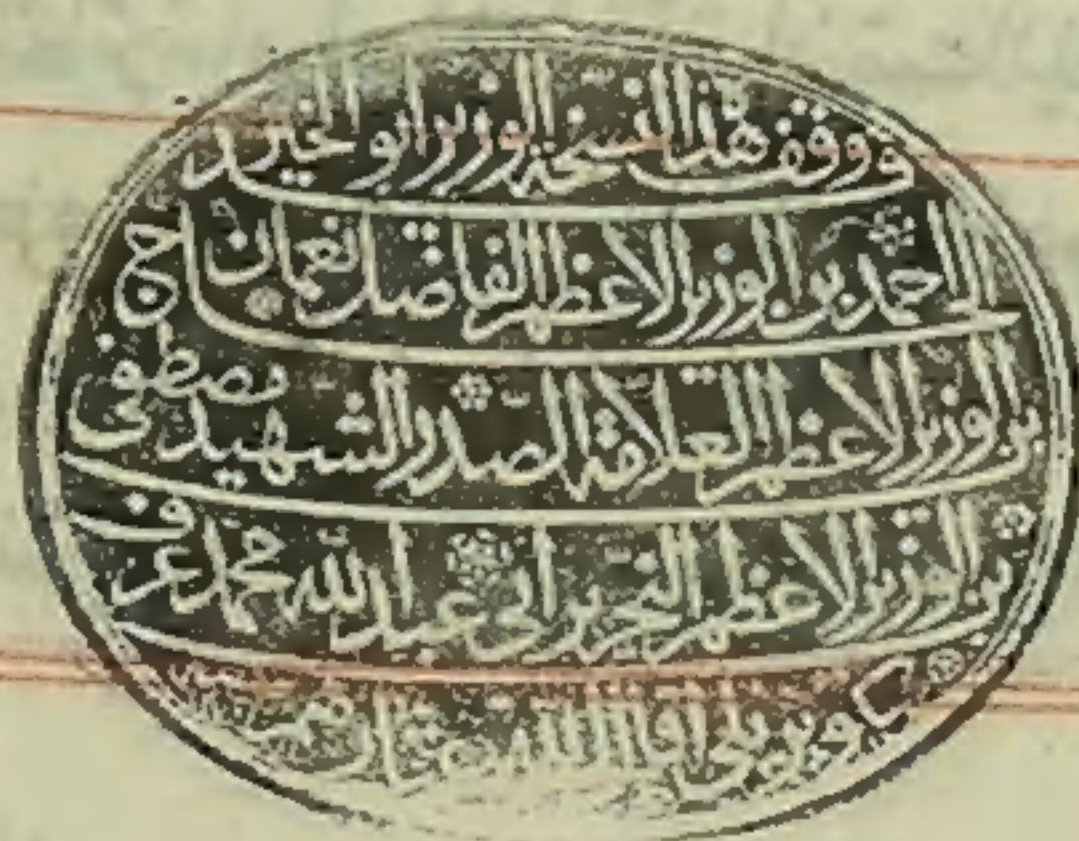 قد وقف هذا النسخة الوزير ابو الخير
الحاج احمد بن الوزير الاعظم الفاضل نعمان
بن الوزير الاعظم العلامة الصدر الشهيد مصطفى
بن الوزير الاعظم النحرير ابي عبد الله محمد عرف
كوپريلي اقال الله عثارهم